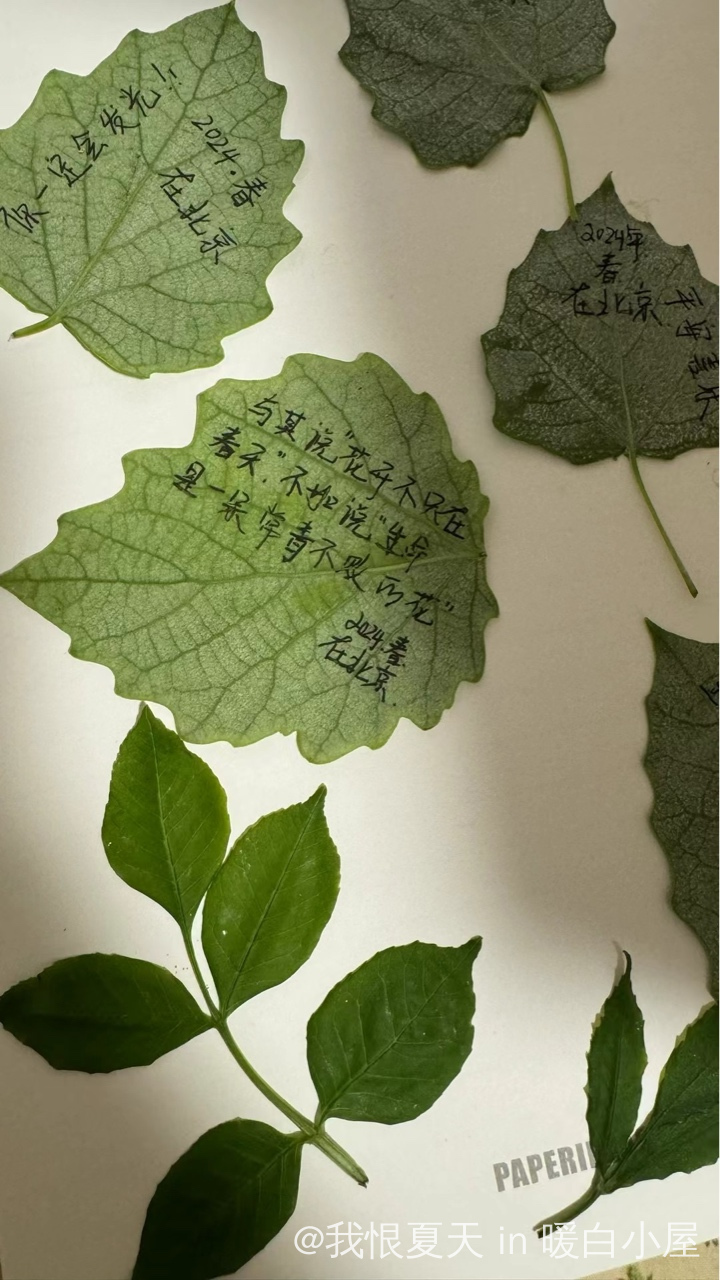 一定会发光!!
2024.春
在北京
2024年
春
在北京
平安喜乐
与其说“花开不只在
春天”.不如说“生命
是一朵常青不败的花”
2024.春
在北京.
PAPERI
@我恨夏天 in 暖白小屋